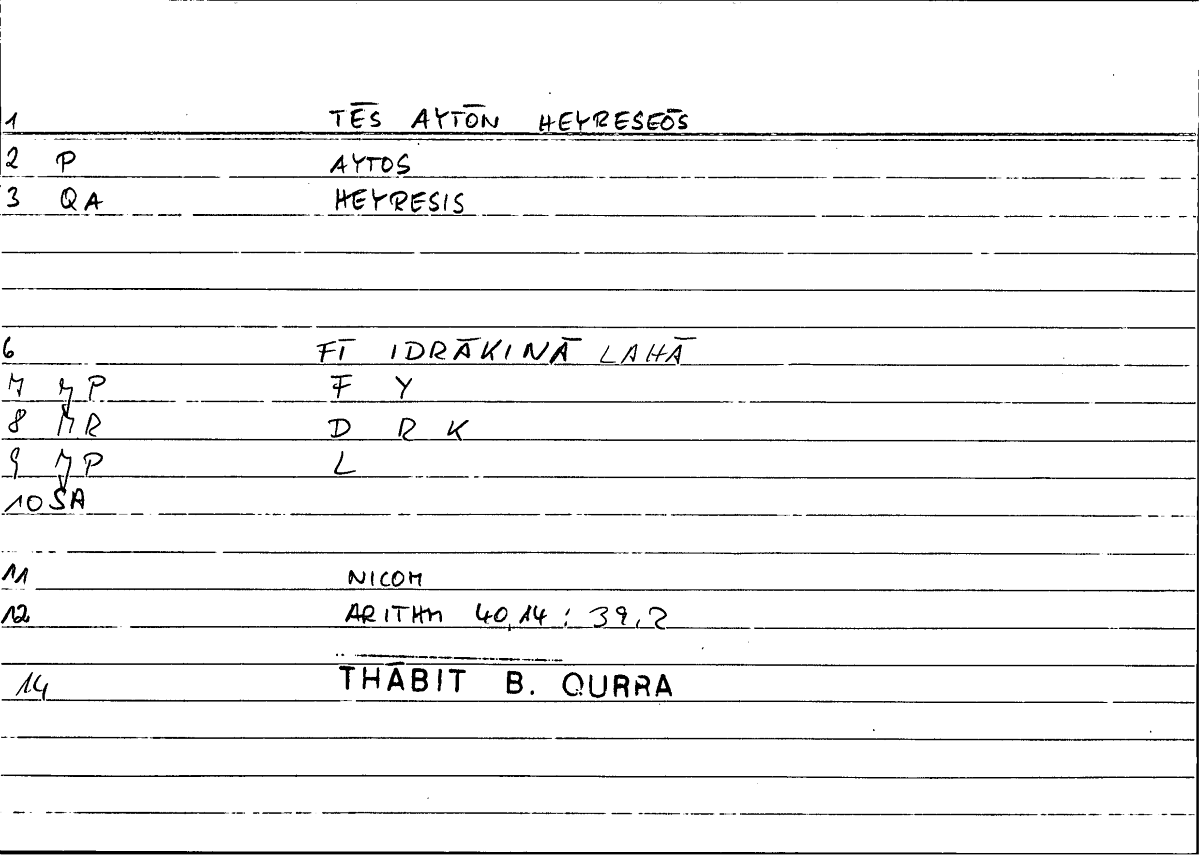 1 TĒS AYTŌN HEYRESEŌS
2 P AYTOS
3 QA HEYRESIS
6 FĪ IDRĀKINĀ LAHĀ
7 P F Y
8 R D R K
9 P L
10 SA
11 NICOM
12 ARITHM 40,14 : 39,2
14 THĀBIT B. QURRA